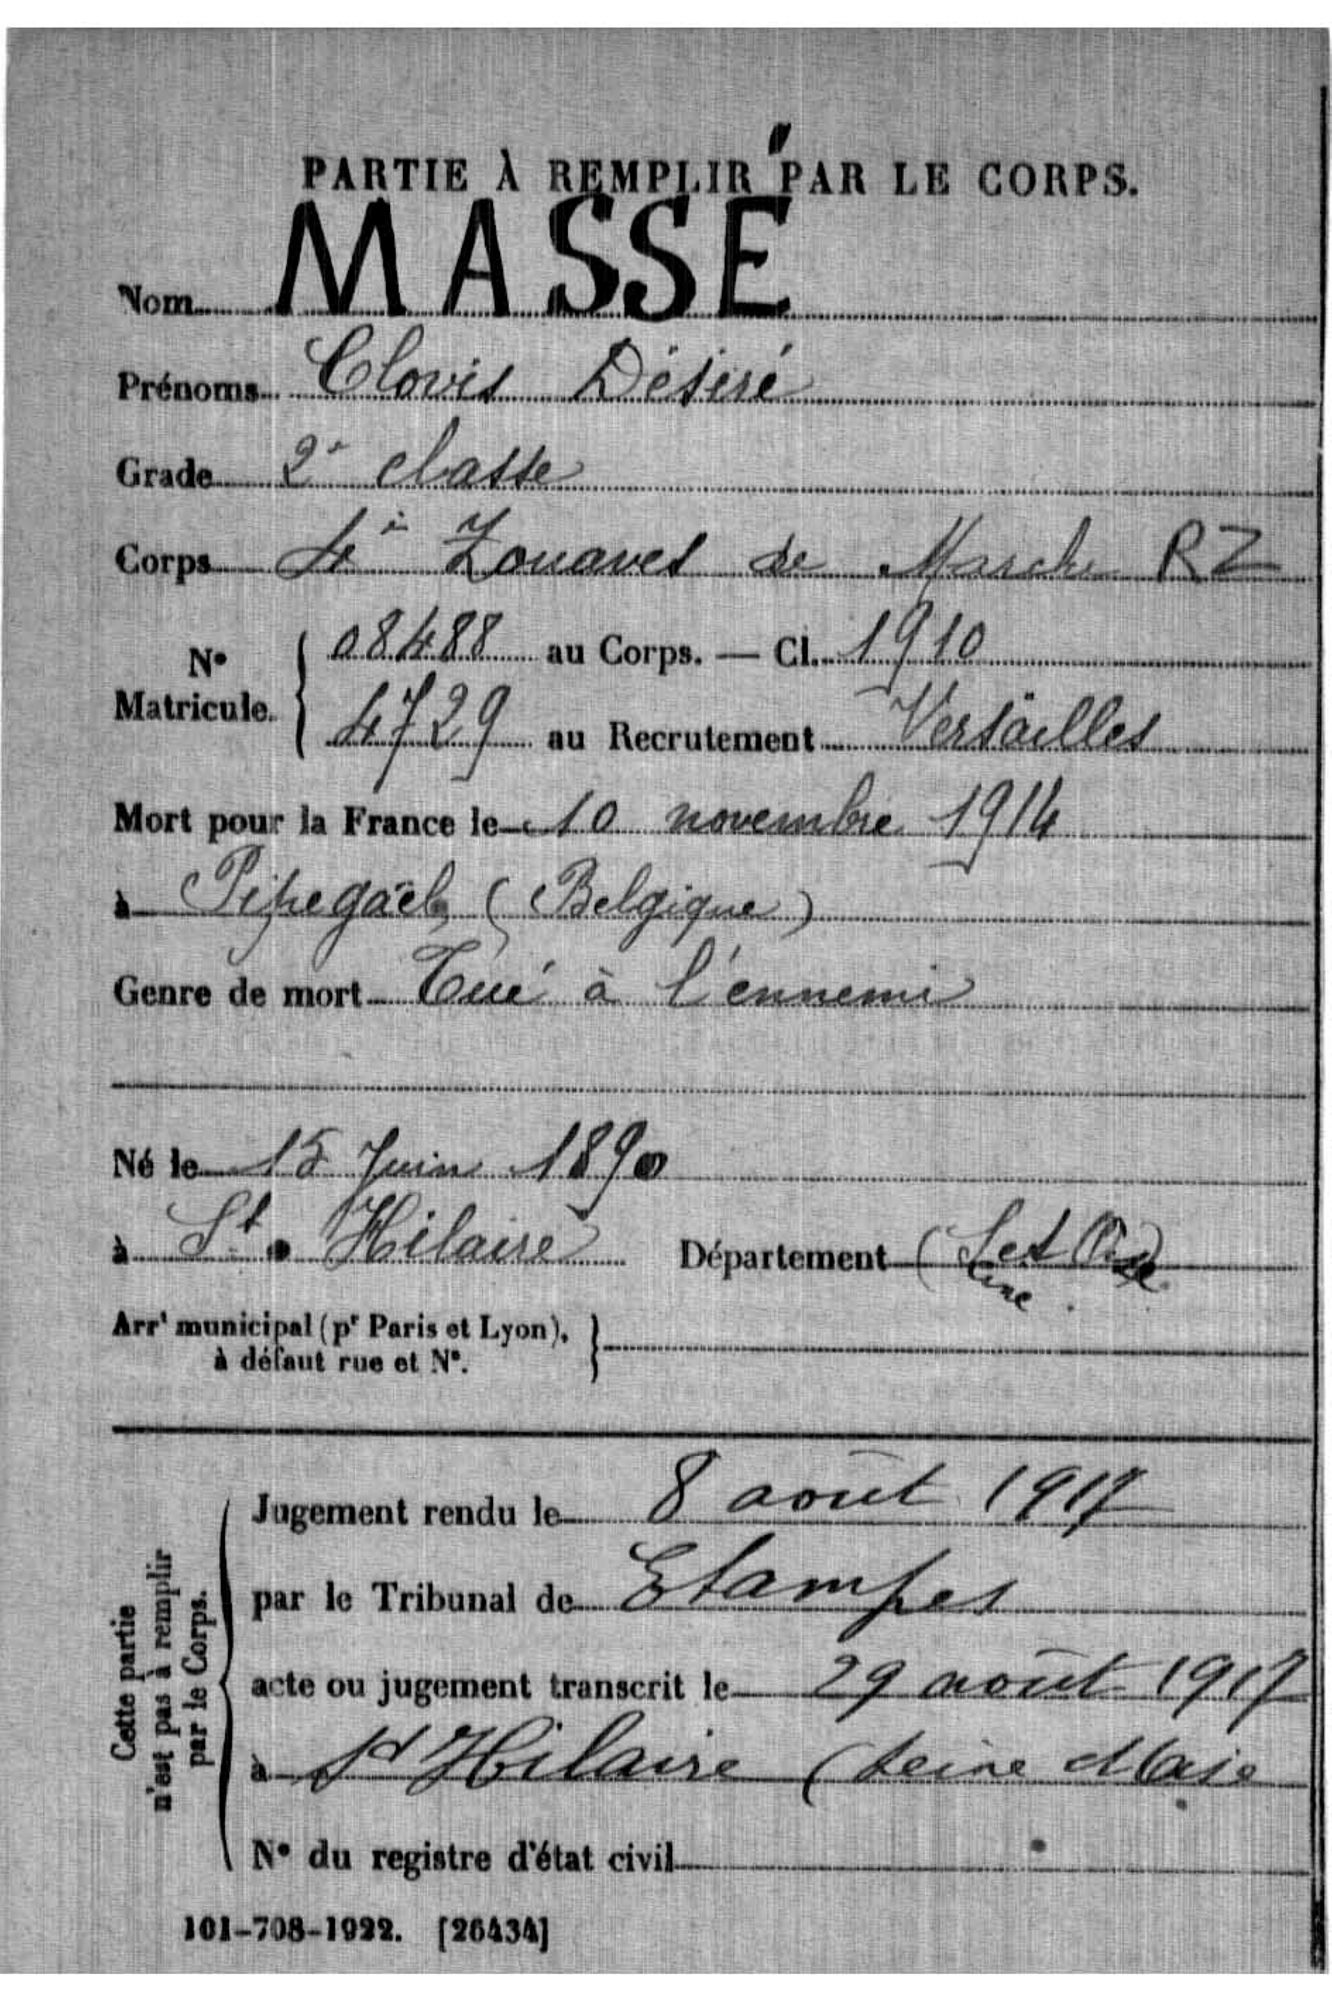 PARTIE À REMPLIR PAR LE CORPS.
Nom MASSÉ
Prénoms Clovis Désiré
Grade 2e classe
Corps 4e Zouaves de Marche RZ
N° Matricule. { 08488 au Corps. — Cl. 1910
4729 au Recrutement Versailles
Mort pour la France le 10 novembre 1914
à Pipegaël (Belgique)
Genre de mort Tué à l'ennemi
Né le 15 Juin 1890
à St. Hilaire Département (S et Oise)
eine
Arrt municipal (pr Paris et Lyon),
à défaut rue et N°. }
Cette partie
n'est pas à remplir
par le Corps.
Jugement rendu le 8 août 1917
par le Tribunal de Etampes
acte ou jugement transcrit le 29 août 1917
à St Hilaire (Seine et Oise
N° du registre d'état civil
101-708-1922. [26434]